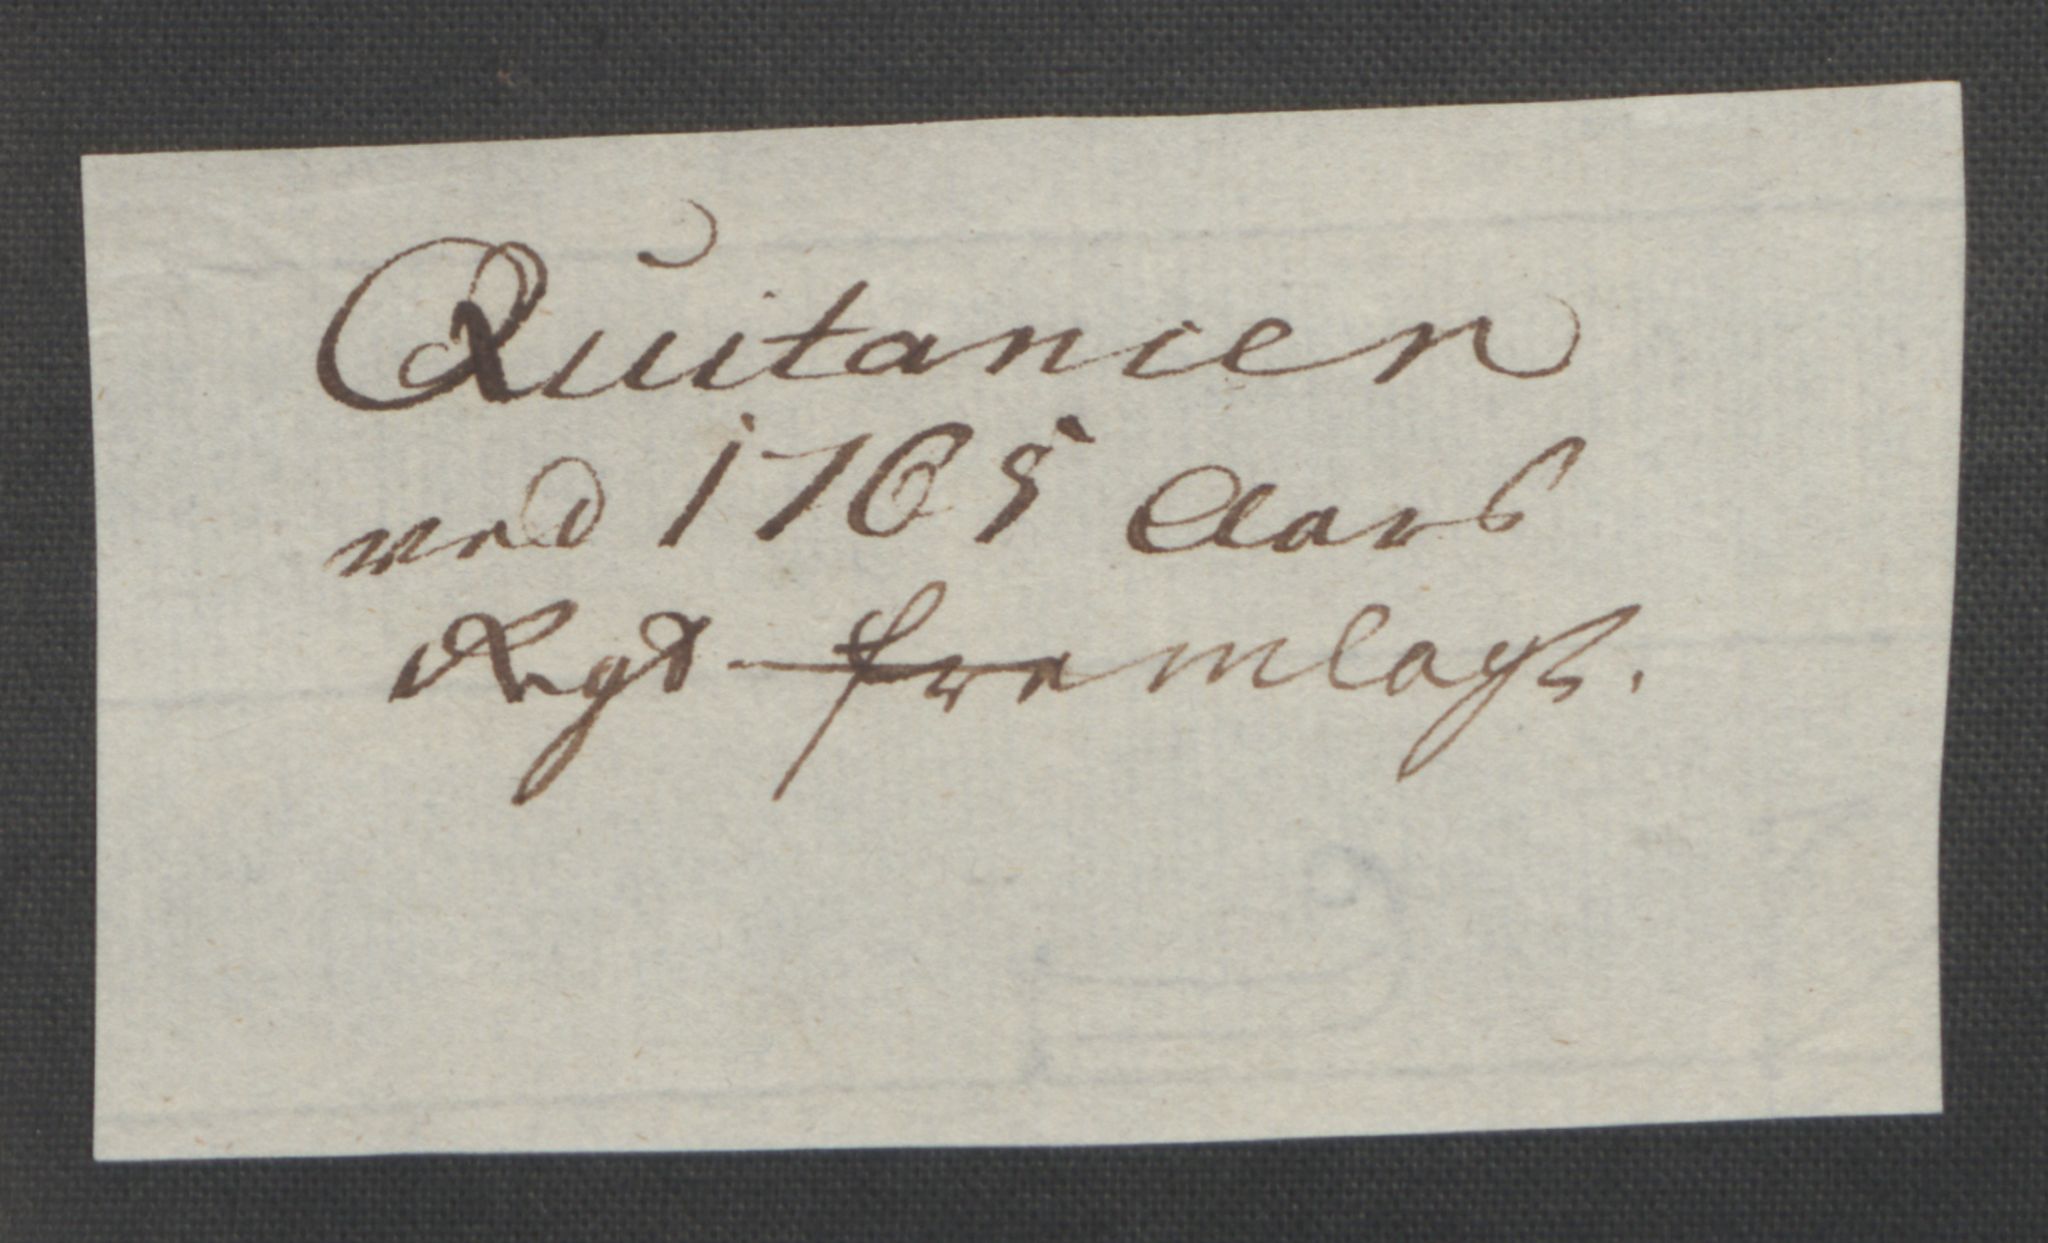 Quitancien
ved 1765 Aars
Regsk fremlagt.